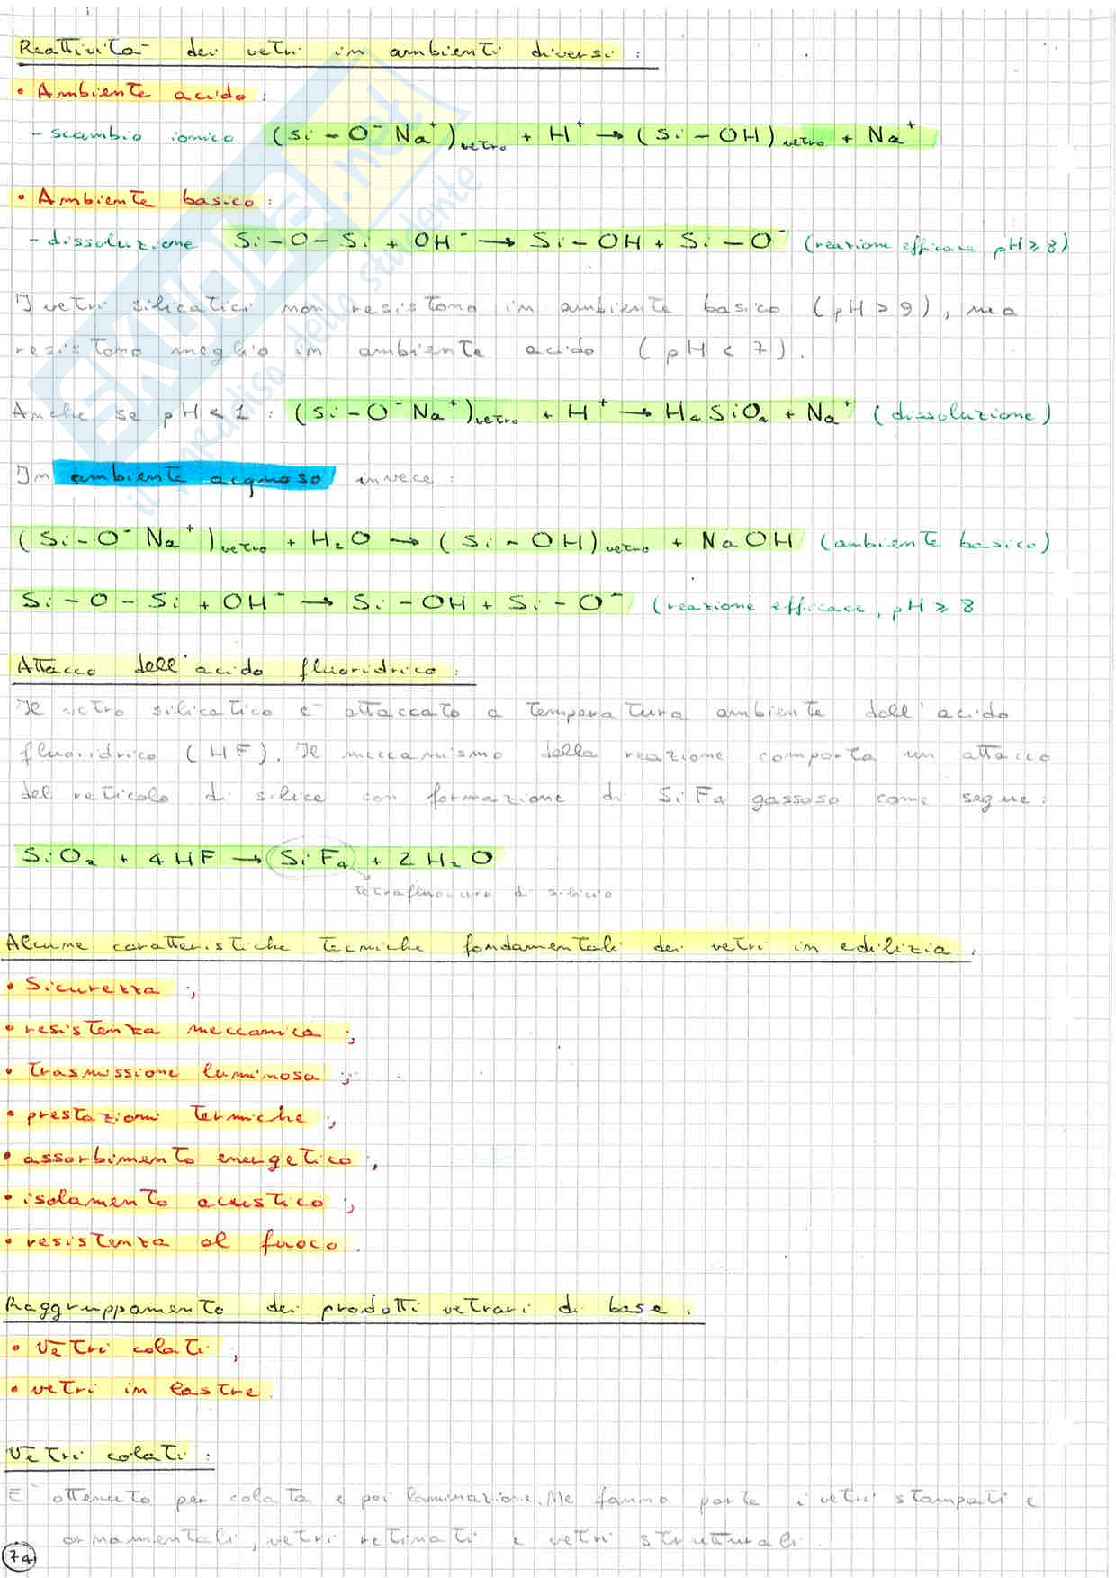 Reattività dei vetri in ambienti diversi:
• Ambiente acido:
- scambio ionico (Si-O⁻Na⁺)vetro + H⁺ → (Si-OH)vetro + Na⁺
• Ambiente basico:
- dissoluzione Si-O-Si + OH⁻ → Si-OH + Si-O⁻ (reazione efficace pH ≥ 8)
I vetri silicatici non resistono in ambiente basico (pH > 9), ma
resistono meglio in ambiente acido (pH < 7).
Anche se pH < 1: (Si-O⁻Na⁺)vetro + H⁺ → H₄SiO₄ + Na⁺ (dissoluzione)
In ambiente acquoso invece:
(Si-O⁻Na⁺)vetro + H₂O → (Si-OH)vetro + NaOH (ambiente basico)
Si-O-Si + OH⁻ → Si-OH + Si-O⁻ (reazione efficace, pH ≥ 8
Attacco dell'acido fluoridrico:
Il vetro silicatico è attaccato a temperatura ambiente dall'acido
fluoridrico (HF). Il meccanismo della reazione comporta un attacco
del reticolo di silice con formazione di SiF₄ gassoso come segue:
SiO₂ + 4HF → SiF₄ + 2H₂O
tetrafluoruro di silicio
Alcune caratteristiche tecniche fondamentali dei vetri in edilizia.
• Sicurezza;
• resistenza meccanica;
• trasmissione luminosa;
• prestazioni termiche;
• assorbimento energetico;
• isolamento acustico;
• resistenza al fuoco.
Raggruppamento dei prodotti vetrari di base.
• Vetri colati;
• vetri in lastre.
Vetri colati:
E' ottenuto per colata e poi laminazione. Ne fanno parte i vetri stampati e
ornamentali, vetri retinati e vetri strutturali.
74
SKUOLA.net
il paradiso dello studente